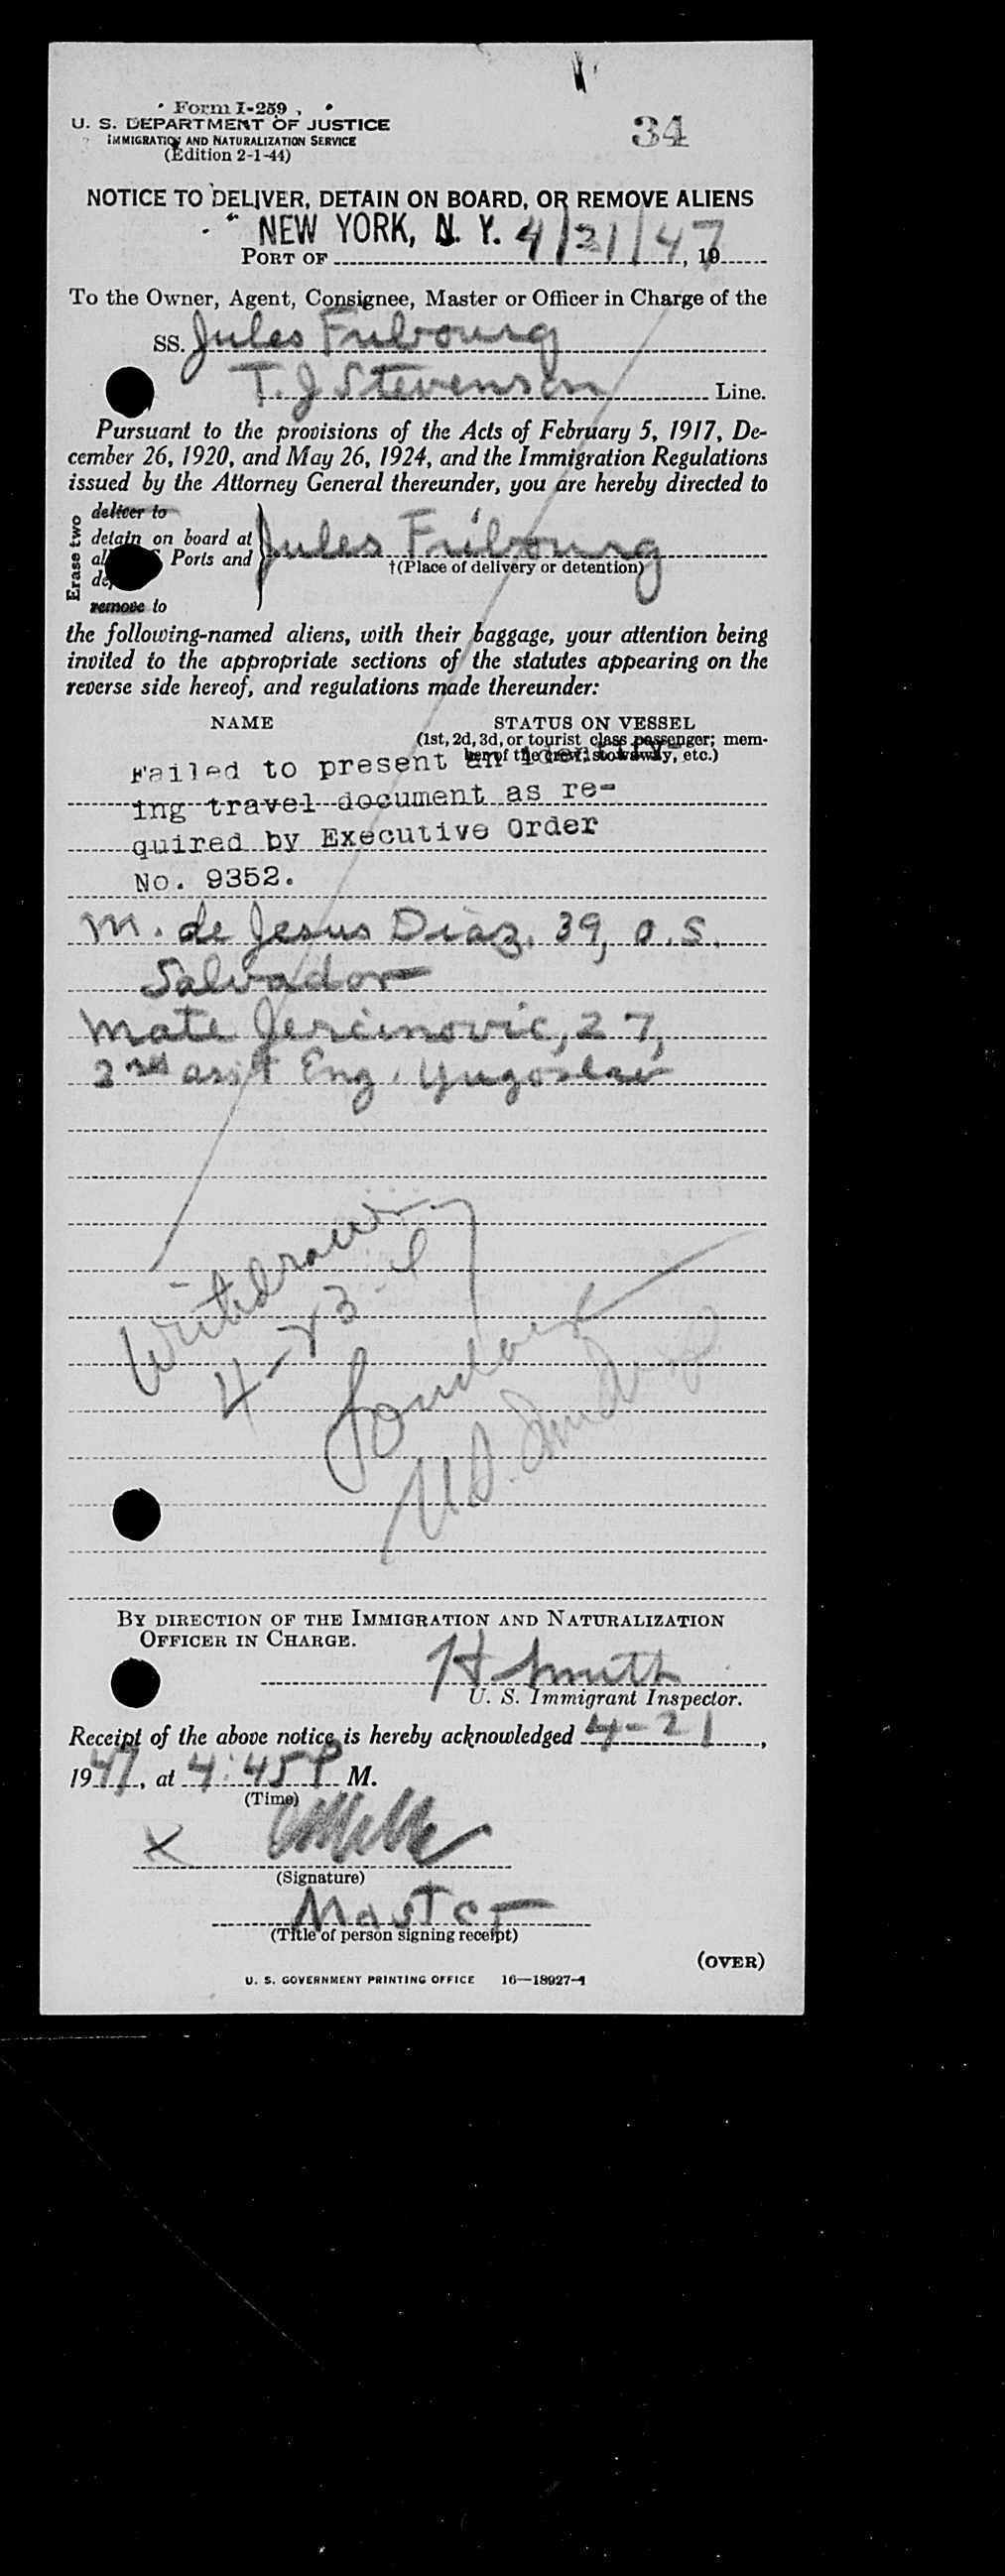 Form I-259
34
U. S. DEPARTMENT OF JUSTICE
IMMIGRATION AND NATURALIZATION SERVICE
(Edition 2-1-44)
NOTICE TO DELIVER, DETAIN ON BOARD, OR REMOVE ALIENS
PORT OF NEW YORK, N. Y. 4/21/47, 19
To the Owner, Agent, Consignee, Master or Officer in Charge of the
SS. Jules Fribourg
T. J Stevenson Line.
Pursuant to the provisions of the Acts of February 5, 1917, De-
cember 26, 1920, and May 26, 1924, and the Immigration Regulations
issued by the Attorney General thereunder, you are hereby directed to
Erase two
deliver to
detain on board at
Ports and
remove to
Jules Fribourg
†(Place of delivery or detention)
the following-named aliens, with their baggage, your attention being
invited to the appropriate sections of the statutes appearing on the
reverse side hereof, and regulations made thereunder:
NAME STATUS ON VESSEL
(1st, 2d, 3d, or tourist class passenger; mem-
ber of the crew, stowaway, etc.)
Failed to present an
ing travel document as re-
quired by Executive Order
No. 9352.
M. de Jesus Diaz, 39, O.S.
Salvador
Mate Jercinovic, 27,
2nd ass't Eng. Yugoslav
Withdrawn
4-23-
BY DIRECTION OF THE IMMIGRATION AND NATURALIZATION
OFFICER IN CHARGE.
H Smith
U. S. Immigrant Inspector.
Receipt of the above notice is hereby acknowledged 4-21,
1947, at 4:45 P M.
(Time)
X
(Signature)
Master
(Title of person signing receipt)
(OVER)
U. S. GOVERNMENT PRINTING OFFICE 16—18927-1